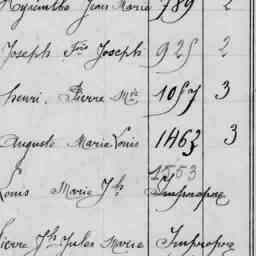 Hyacinthe Jean Marie 789 2
Joseph Fois Joseph 925 2
henri Pierre Mie 1057 3
Auguste Marie Louis 1463 3
1553
Louis Marie Jh Impropre
Pierre Jh Jules Marie Impropre